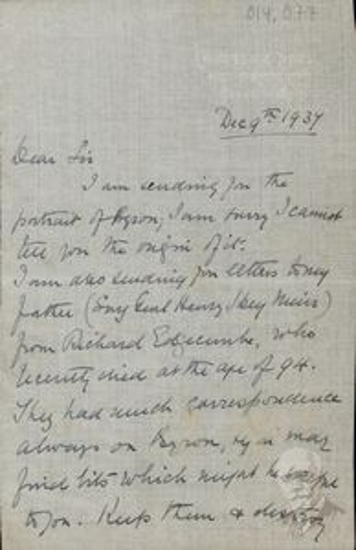 014,077
Dec 9th 1937
Dear Sir
I am sending you the
portrait of Byron, I am sorry I cannot
tell you the origin of it.
I am also sending you letters to my
father (Surg Genl Henry Skey Muir)
from Richard Edgcumbe, who
recently died at the age of 94.
They had much correspondence
always on Byron, & you may
find bits which might be
to you. Keep them & destroy